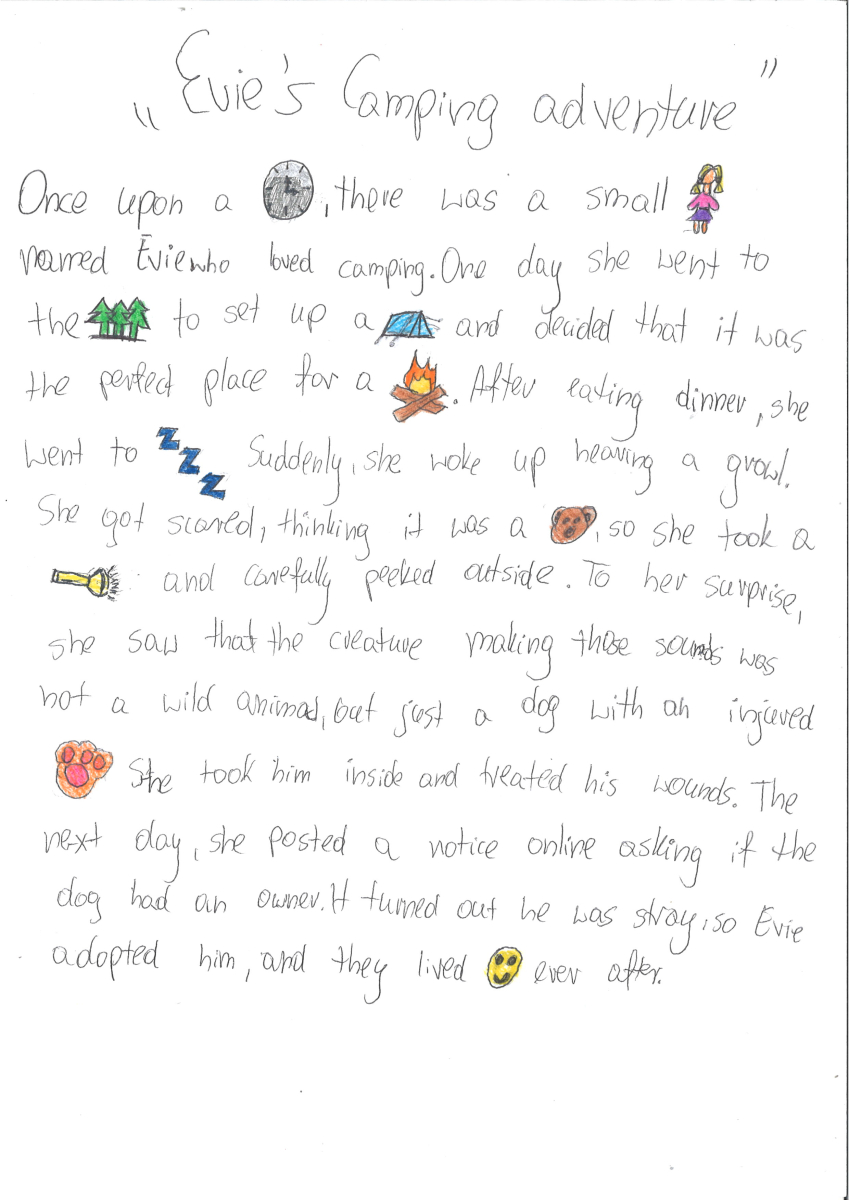 „Evie's Camping adventure"
Once upon a , there was a small
named Evie who loved camping. One day she went to
the to set up a and decided that it was
the perfect place for a . After eating dinner, she
went to Suddenly, she woke up hearing a growl.
She got scared, thinking it was a , so she took a
and carefully peeked outside. To her surprise,
she saw that the creature making those sounds was
not a wild animal, but just a dog with an injured
She took him inside and treated his wounds. The
next day, she posted a notice online asking if the
dog had an owner. It turned out he was stray, so Evie
adopted him, and they lived ever after.